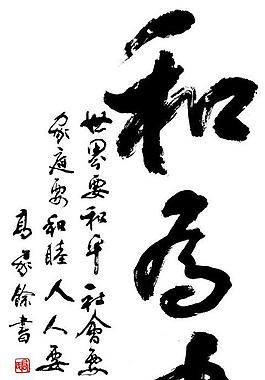 和為
世界要和平社會要
家庭要和睦人人要
高餘書